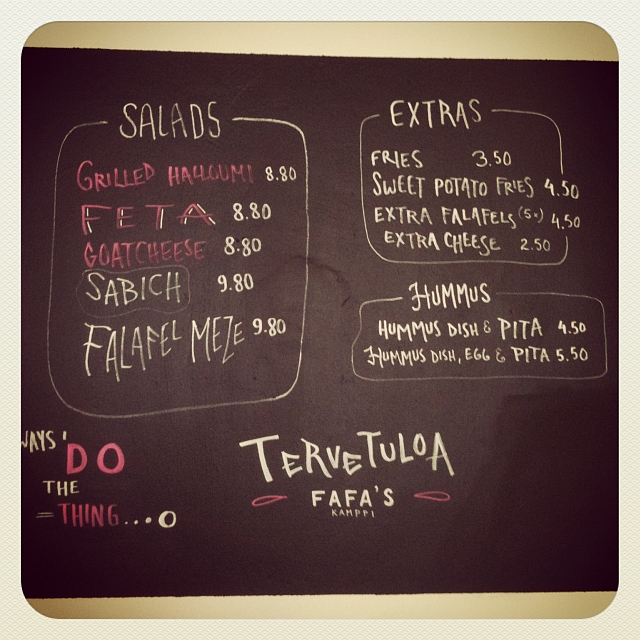 SALADS
GRILLED HALLOUMI 8.80
FETA 8.80
GOATCHEESE 8.80
SABICH 9.80
FALAFEL MEZE 9.80
EXTRAS
FRIES 3.50
SWEET POTATO FRIES 4.50
EXTRA FALAFELS (5×) 4.50
EXTRA CHEESE 2.50
HUMMUS
HUMMUS DISH & PITA 4.50
HUMMUS DISH, EGG & PITA 5.50
WAYS
DO
THE
THING...O
TERVETULOA
FAFA'S
KAMPPI